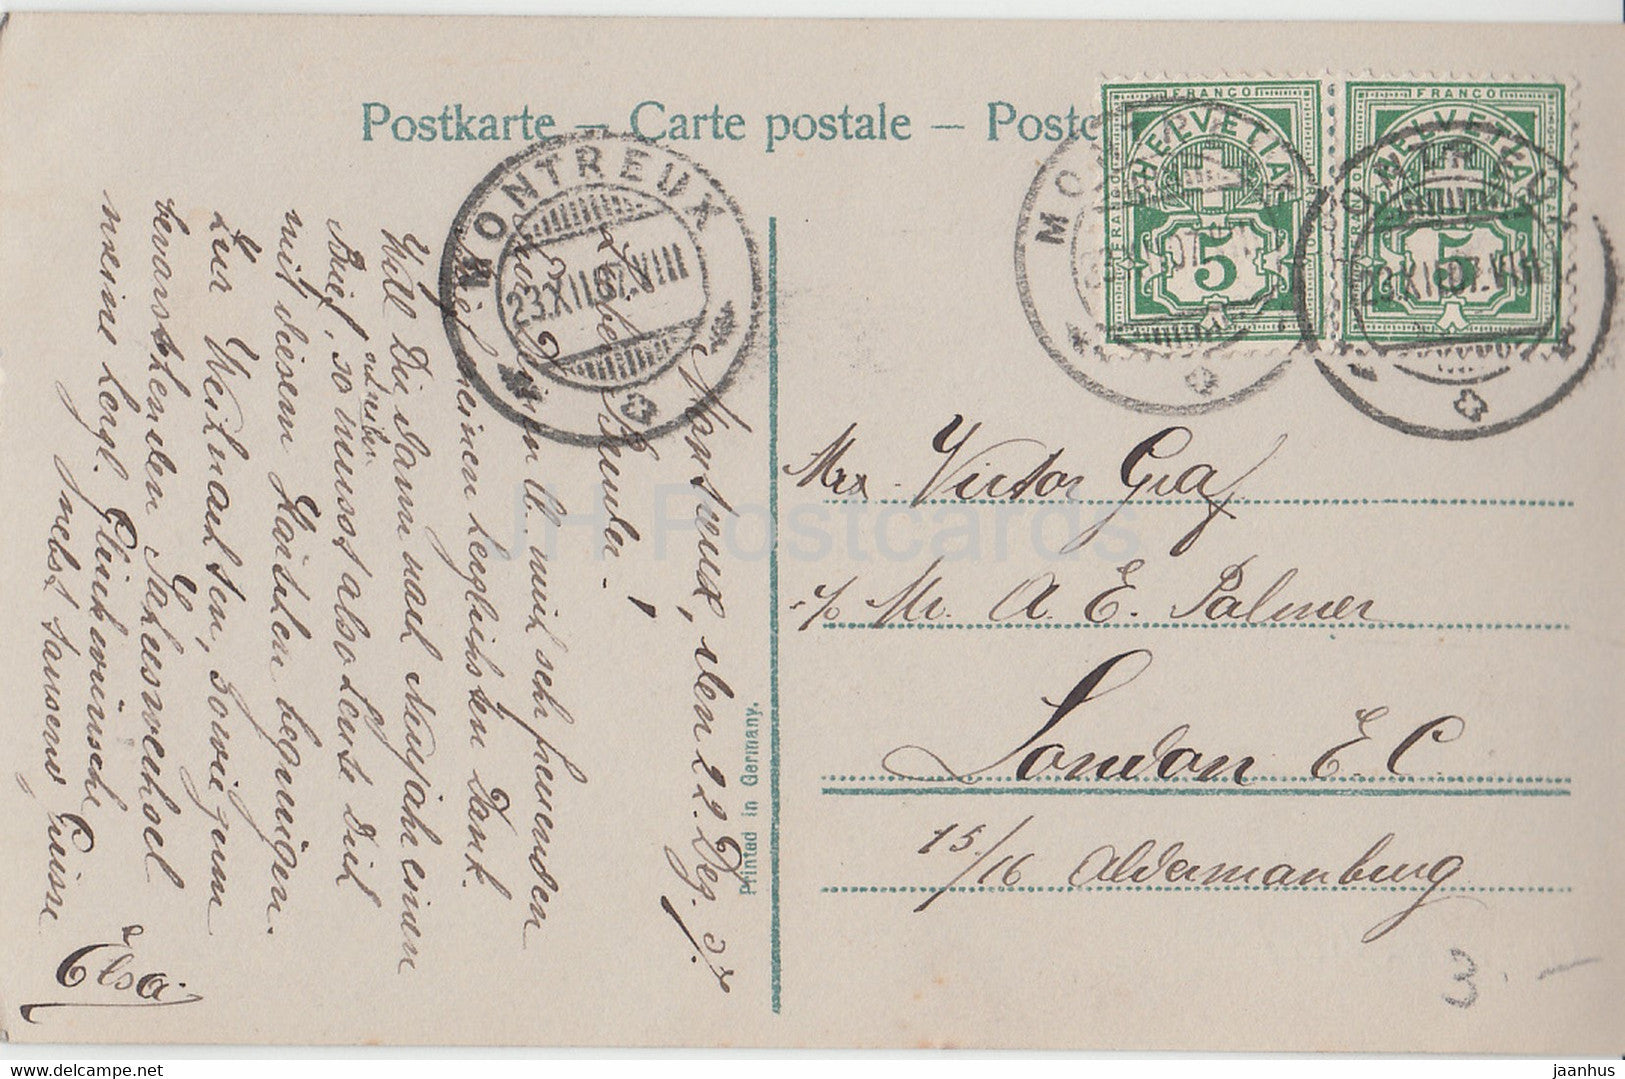 Postkarte — Carte postale — Postc
FRANCO
HELVETIA
5
FRANCO
HELVETIA
5
MONTREUX
23.XII.07.VIII
MONTREUX
23.XII.07.VIII
Montreux, den 22. Dez. 07
Lieber Bruder!
Für Dein lb. mich sehr freuenden
Brief meinen herzlichsten Dank.
Will Dir dann nach Neujahr einen
Brief schreiben, so musst also heute Dich
mit diesem Kärtchen begnügen.
Zur Weihnachten, sowie zum
bevorstehenden Jahreswechsel
meine herzl. Glückwünsche
nebst tausend Grüsse
Elsa.
Printed in Germany.
Mrx. Victor Graf
c/o Mr. A. E. Palmer
London E. C.
15/16 Aldermanburg
3.-
JH Postcards
jaanhus